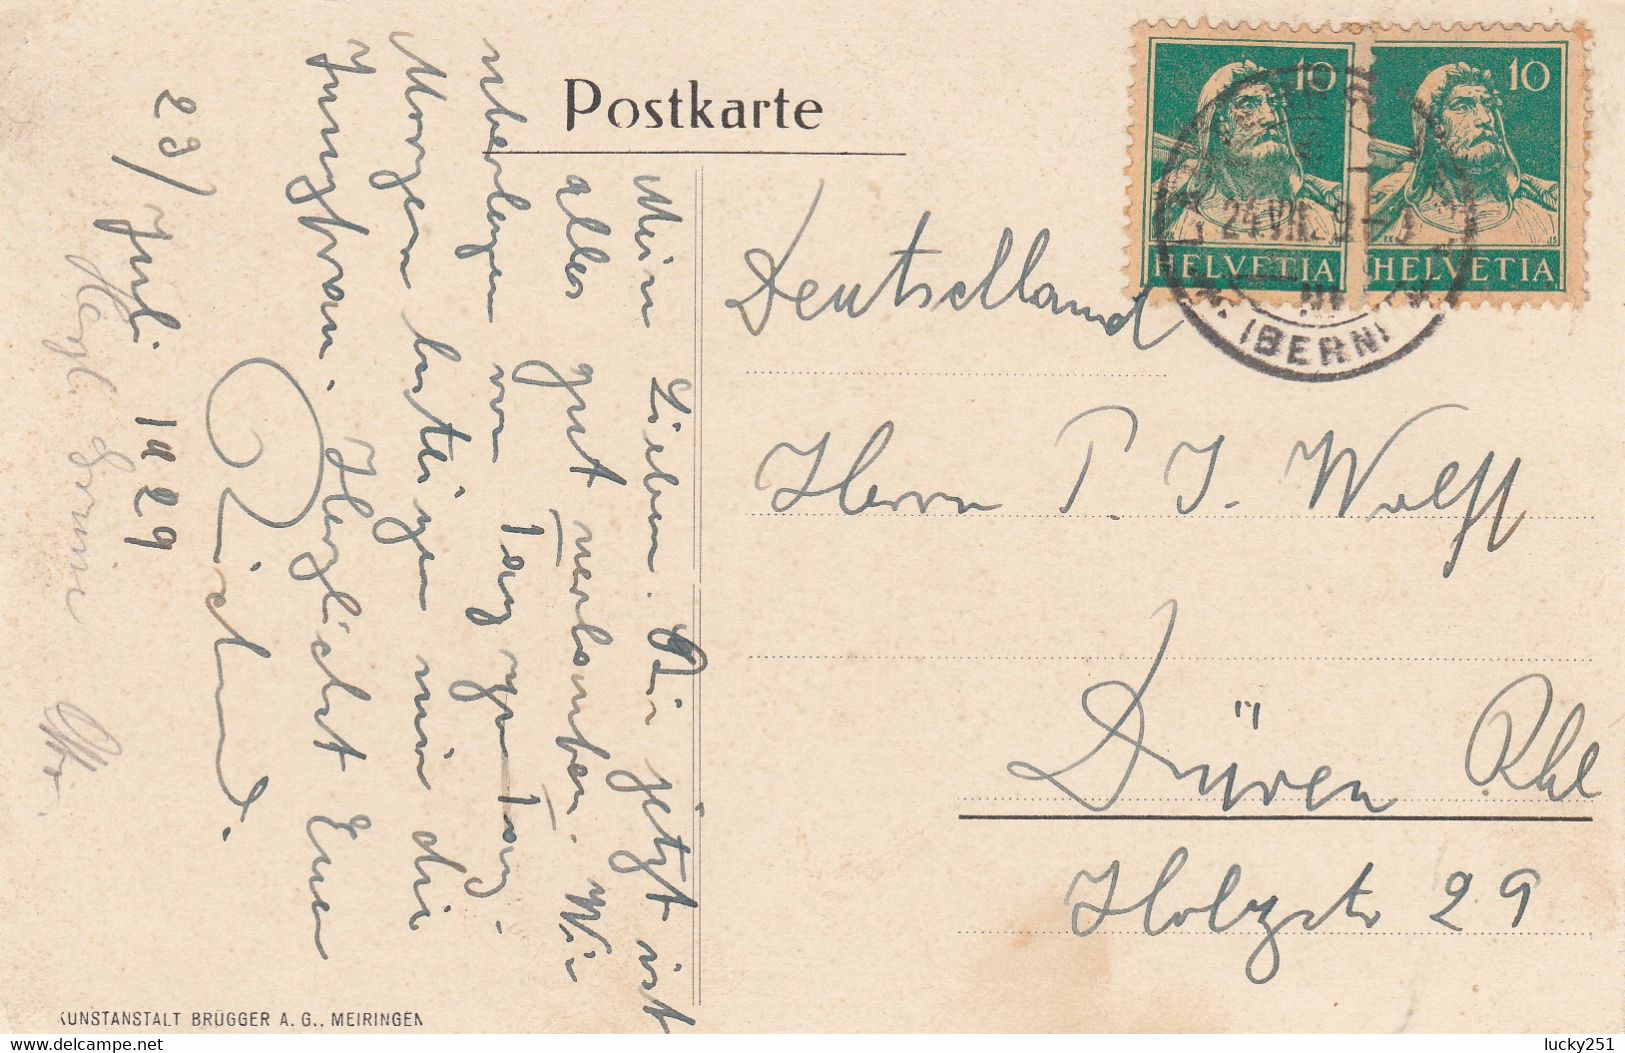 Postkarte
10 10
HELVETIA HELVETIA
(BERN)
Mein Lieben. Bis jetzt ist
alles gut verlaufen. Wir
überlegen von Tag zu Tag.
Morgen besteigen wir die
Jungfrau. Herzlichst Euer
Richard.
23/Juli 1929
Herzl. Grüsse
Deutschland
Herrn P. J. Wolff
Düren Rhl
Holzstr 29
KUNSTANSTALT BRÜGGER A. G., MEIRINGEN
lucky251